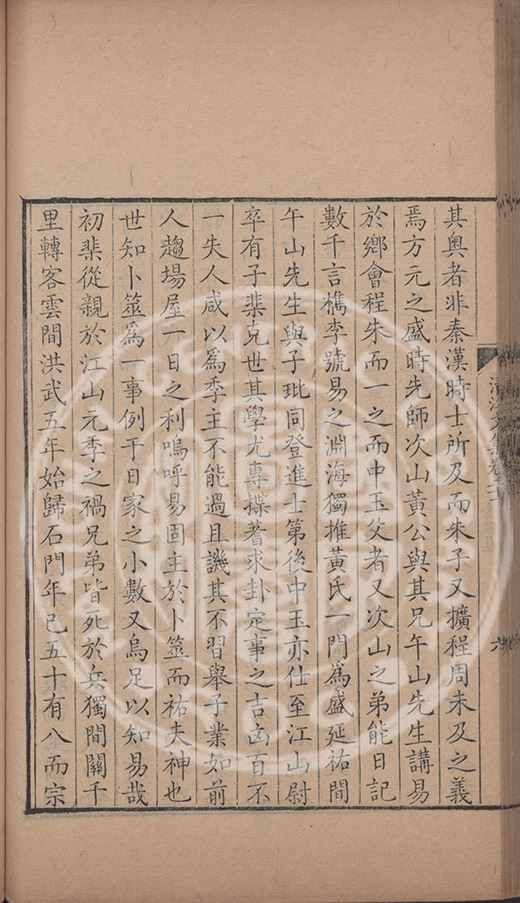 其奧者非秦漢時士所及而朱子又擴程周未及之義
焉方元之盛時先師次山黃公與其兄午山先生講易
於鄉會程朱而一之而中玉父者又次山之弟能日記
數千言檇李號易之淵海獨推黃氏一門爲盛延祐間
午山先生與子玭同登進士第後中玉亦仕至江山尉
卒有子棐克世其學尤專揲蓍求卦定事之吉凶百不
一失人咸以爲季主不能過且譏其不習舉子業如前
人趨場屋一日之利嗚呼易固主於卜筮而祐夫神也
世知卜筮爲一事例于日家之小數又烏足以知易哉
初棐從親於江山元季之禍兄弟皆死於兵獨間關千
里轉客雲間洪武五年始歸石門年已五十有八而宗
六